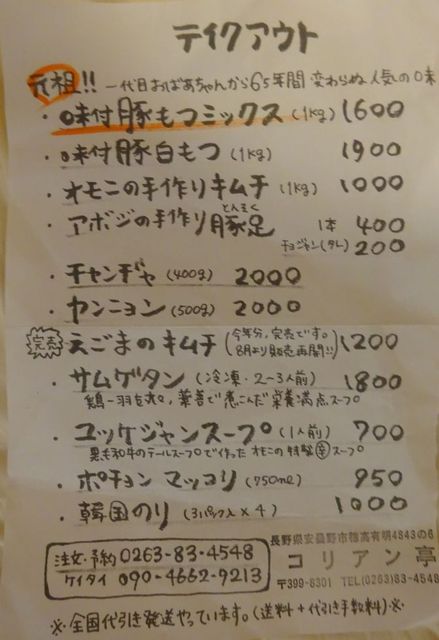 テイクアウト
元祖!! 一代目おばあちゃんから65年間 変わらぬ人気の味
・味付豚もつミックス (1kg) 1600
・味付豚白もつ (1kg) 1900
・オモニの手作りキムチ (1kg) 1000
・アボジの手作り豚足 1本 400
とんそく
チョジャン(タレ) 200
・チャンヂャ (400g) 2000
・ヤンニョン (500g) 2000
完売 えごまのキムチ (今年分、完売です。 8月より販売再開!!) 1200
・サムゲタン (冷凍・2~3人前) 1800
鶏一羽を丸。薬善で煮こんだ栄養満点スープ
・ユッケジャンスープ (1人前) 700
黒毛和牛のテールスープで作った オモニの特製辛スープ
・ポチョン マッコリ (750ml) 950
・韓国のり (3パック入×4) 1000
注文・予約 0263-83-4548
ケイタイ 090-4662-9213
長野県安曇野市穂高有明4843の6
コリアン亭
〒399-8301 TEL(0263)83-4548
※全国代引き発送やっています。(送料+代引き手数料)※